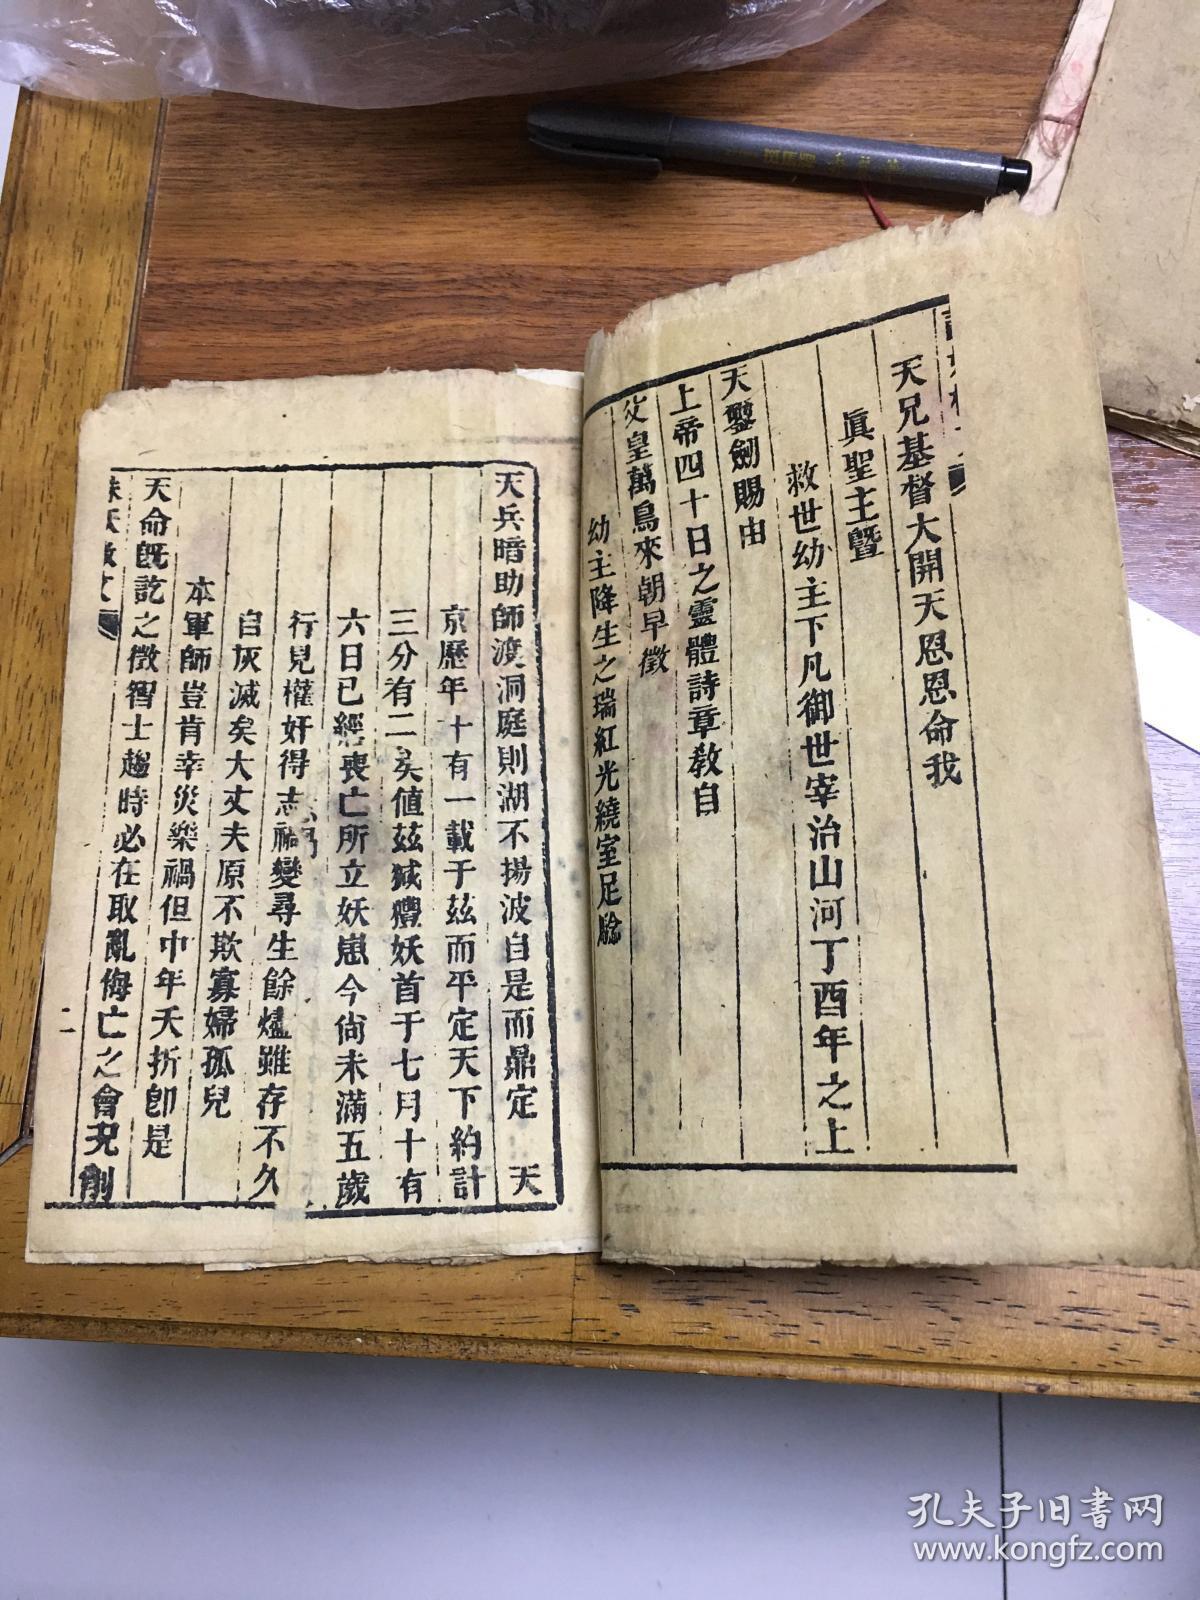 天兄基督大開天恩恩命我
眞聖主曁
救世幼主下凡御世宰治山河丁酉年之上
天璽劍賜由
上帝四十日之靈體詩章教自
父皇萬鳥來朝早徵
幼主降生之瑞紅光繞室足騐
天兵暗助師渡洞庭則湖不揚波自是而鼎定 天
京歷年十有一載于兹而平定天下約計
三分有二矣値兹咸豐妖首于七月十有
六日已經喪亡所立妖崽今尙未滿五歲
行見權奸得志禍變尋生餘燼雖存不久
自灰滅矣大丈夫原不欺寡婦孤兒
本軍師豈肯幸災樂禍但中年夭折卽是
天命旣訖之徵智士趨時必在取亂侮亡之會况削
誅妖檄文
二
孔夫子旧书网
www.kongfz.com